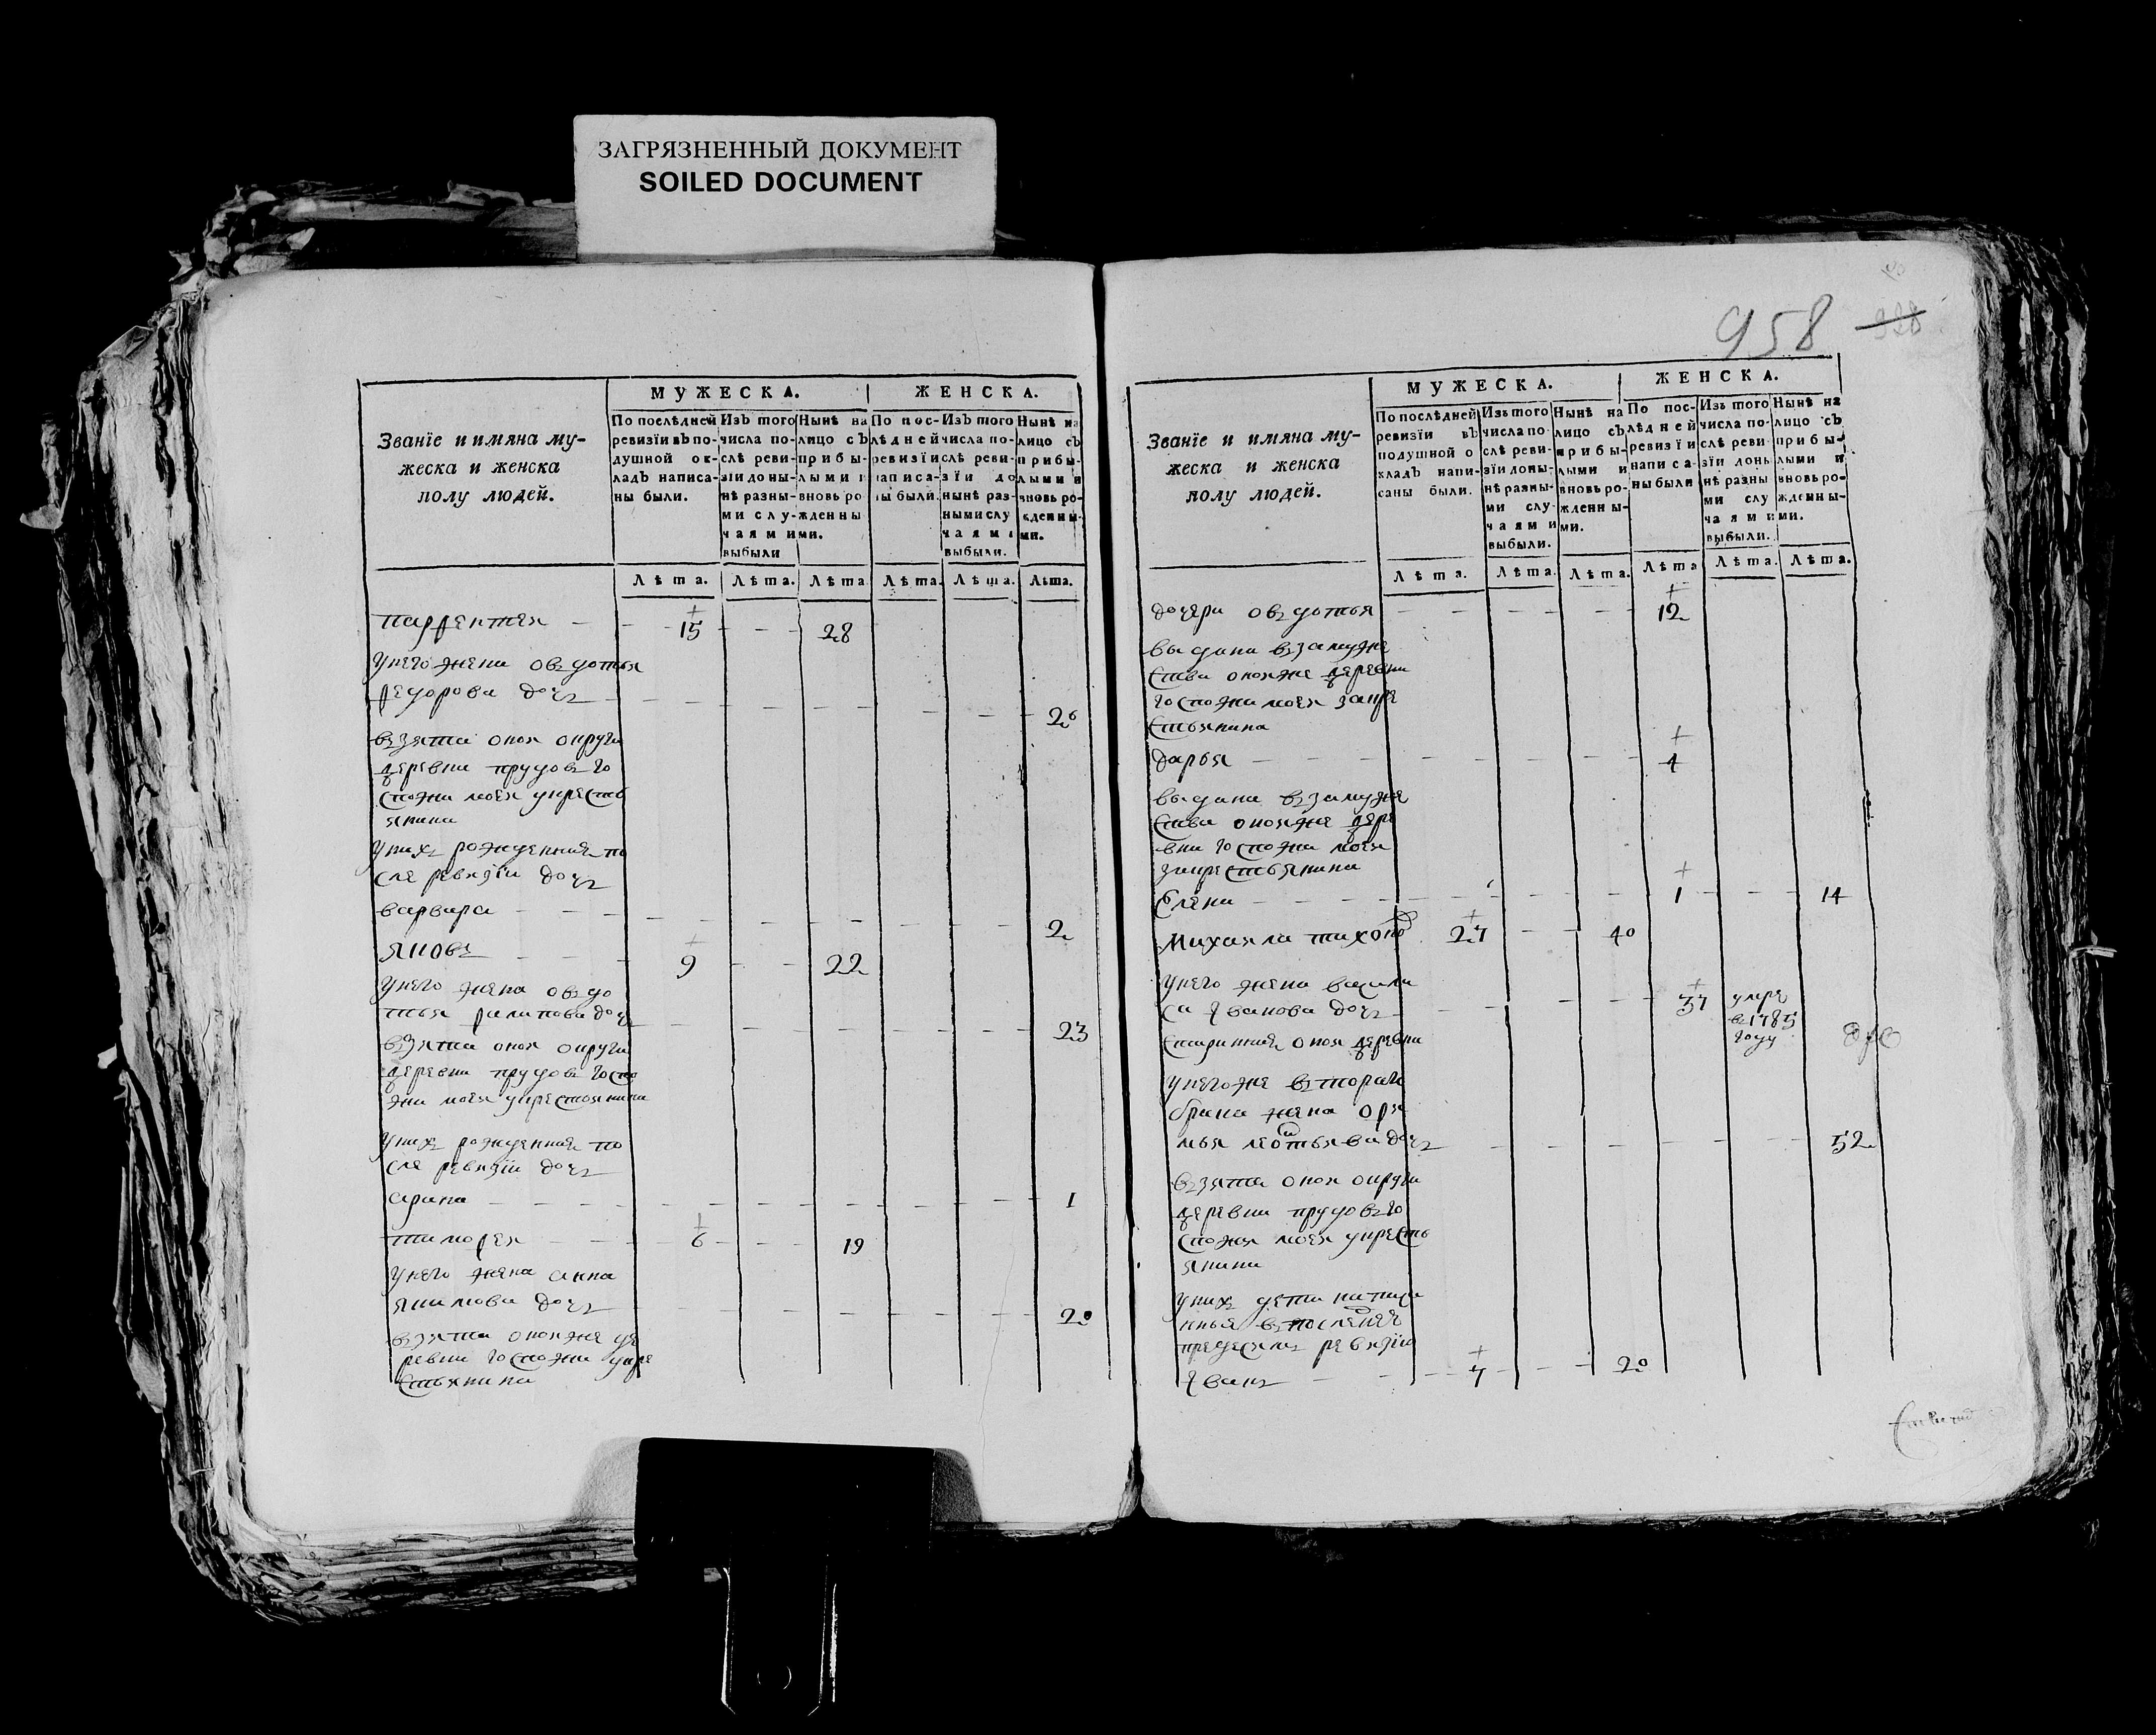 ЗАГРЯЗНЕННЫЙ ДОКУМЕНТ
SOILED DOCUMENT
Званїе и имяна му-
жеска и женска
полу людей.
МУЖЕСКА.
ЖЕНСКА.
По послѣдней
ревизїи въ по-
душной ок-
ладъ написа-
ны были.
Изъ того
числа по-
слѣ реви-
зїи доны-
нѣ разны-
ми слу-
чаями
выбыли
Нынѣ на
лицо съ
прибы-
лыми и
вновь ро
жденны
ми.
По пос-
лѣдней
ревизїи
написа-
ны были.
Изъ того
числа по-
слѣ реви-
зїи до
нынѣ раз-
ными слу
чаями
выбыли.
Нынѣ на
лицо съ
прибы-
лыми и
вновь ро-
жденны-
ми.
Лѣта. Лѣта. Лѣта. Лѣта. Лѣта. Лѣта.
парфентея 15 28
унего жена овдотья
федорова дочь 26
взята оной округи
деревни прудовъ го
спожи моей укресть
янина
унихъ рожденная по
сле ревизїи дочь
варвара 2
яковъ 9 22
унего жена овдо
тья филипова дочь 23
взята оной округи
деревни прудовъ госпо
жи моей укрестьянина
унихъ рожденная по
сле ревизїи дочь
арина 1
тимофея 6 19
унего жена анна
якимова дочь 20
взята оной же де
ревни госпожи укре
стьянина
958
928
Званїе и имяна му-
жеска и женска
полу людей.
МУЖЕСКА.
ЖЕНСКА.
По послѣдней
ревизїи въ
подушной о
кладъ напи-
саны были.
Изъ того
числа по-
слѣ реви-
зїи доны-
нѣ разны-
ми слу-
чаями
выбыли.
Нынѣ на
лицо съ
прибы-
лыми и
вновь ро-
жденны-
ми.
По пос-
лѣдней
ревизїи
написа-
ны были
Изъ того
числа по-
слѣ реви-
зїи донь
нѣ разны
ми слу
чаями
выбыли.
Нынѣ на
лицо съ
прибы-
лыми и
вновь ро-
жденны-
ми.
Лѣта. Лѣта. Лѣта. Лѣта Лѣта. Лѣта.
дочери овдотья 12
выдана взамуже
ства оной же деревни
госпожи моей закре
стьянина
дарья 4
выдана взамуже
ства оной же дере
вни госпожи моей
закрестьянина
Елена 1 14
михаила тихоно 27 40
унего жена васили
са Iванова дочь 37 умре
в1785
году
старинная оной деревни
унего же втораго
брака жена офи
мья леотьява дочь 52
взята оной округи
деревни прудовъ го
спожи моей укресть
янина
унихъ дети написа
нныя впоследней
предесямъ ревизїю
Iванъ 7 20